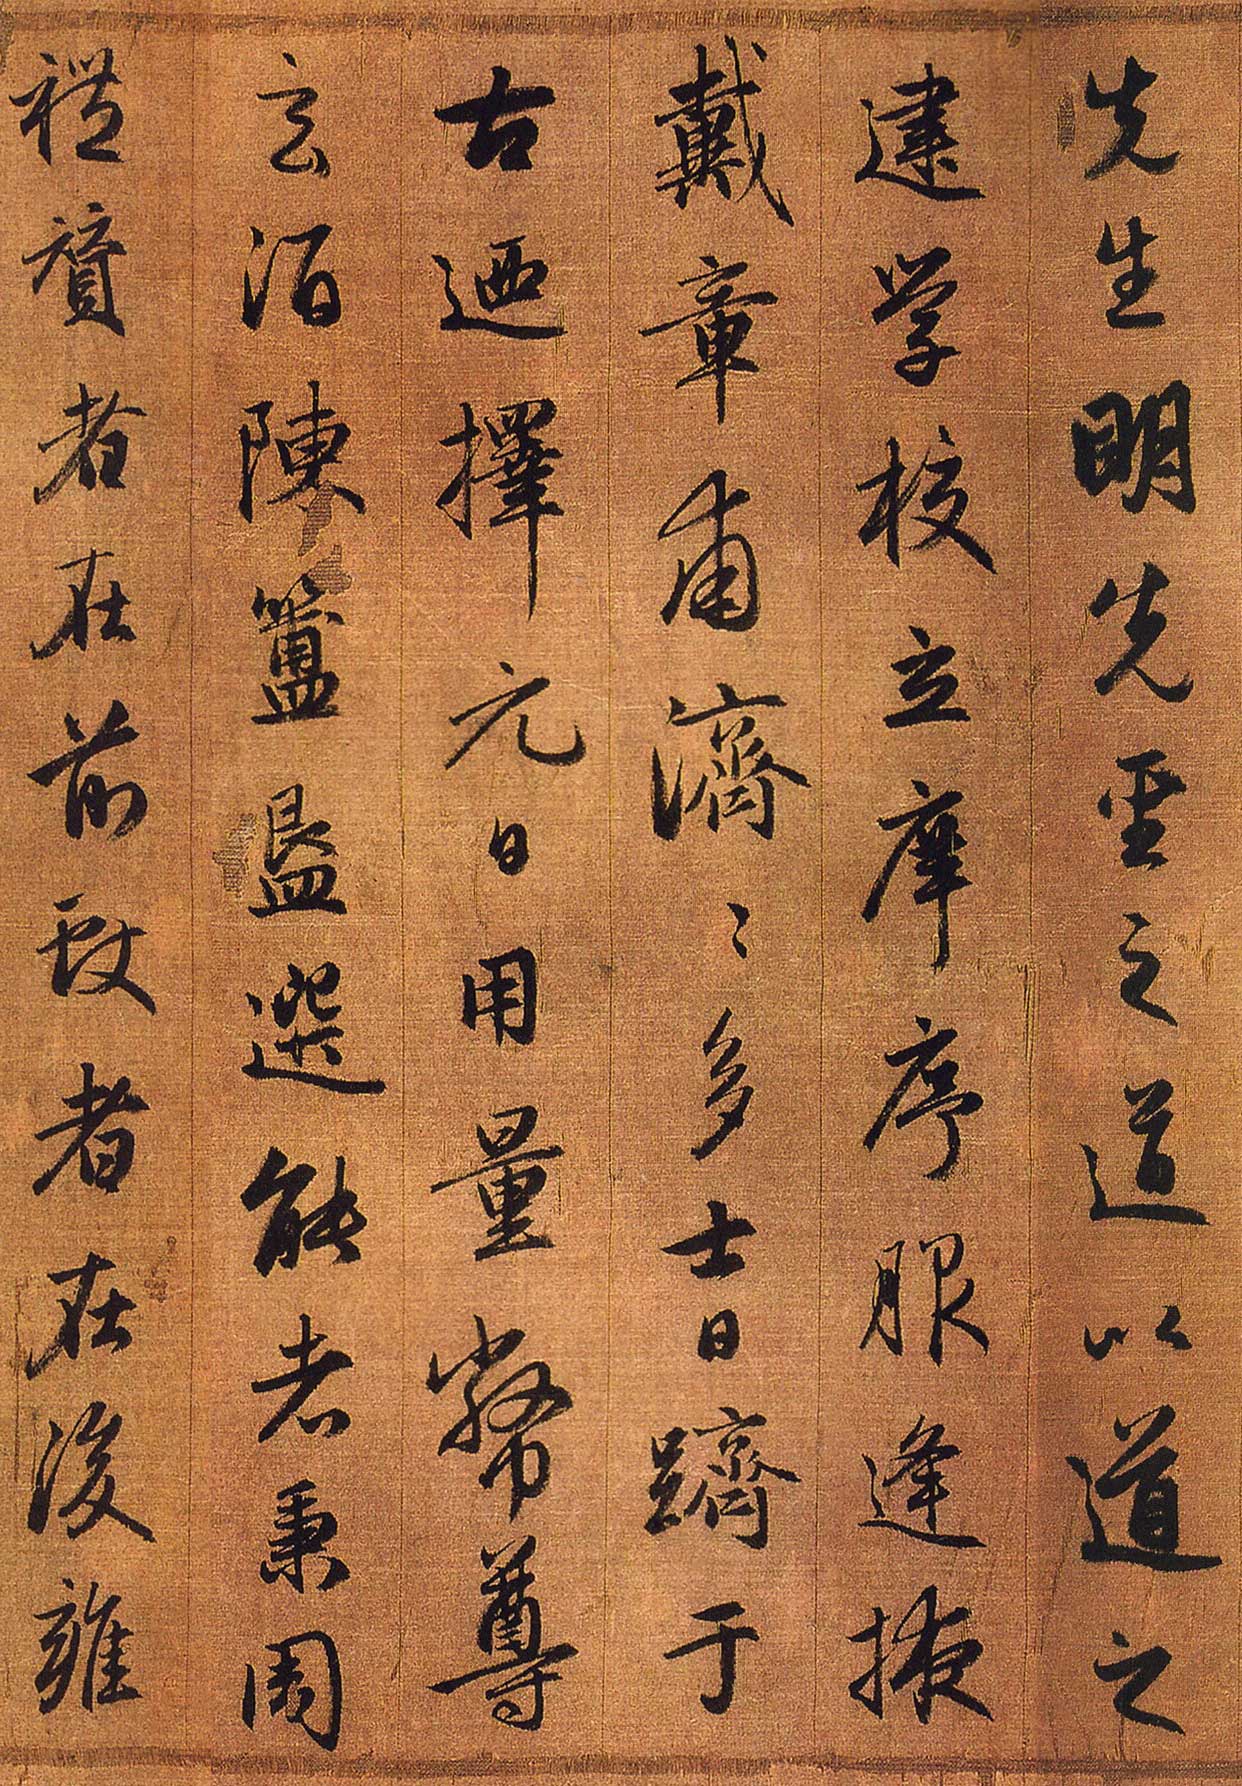 先生明先聖之道以道之
建学校立庠序服逢掖
戴章甫濟〻多士日躋于
古迺擇元日用量幣尊
玄酒陳簠簋選能者秉周
禮贊者在前者在後雍